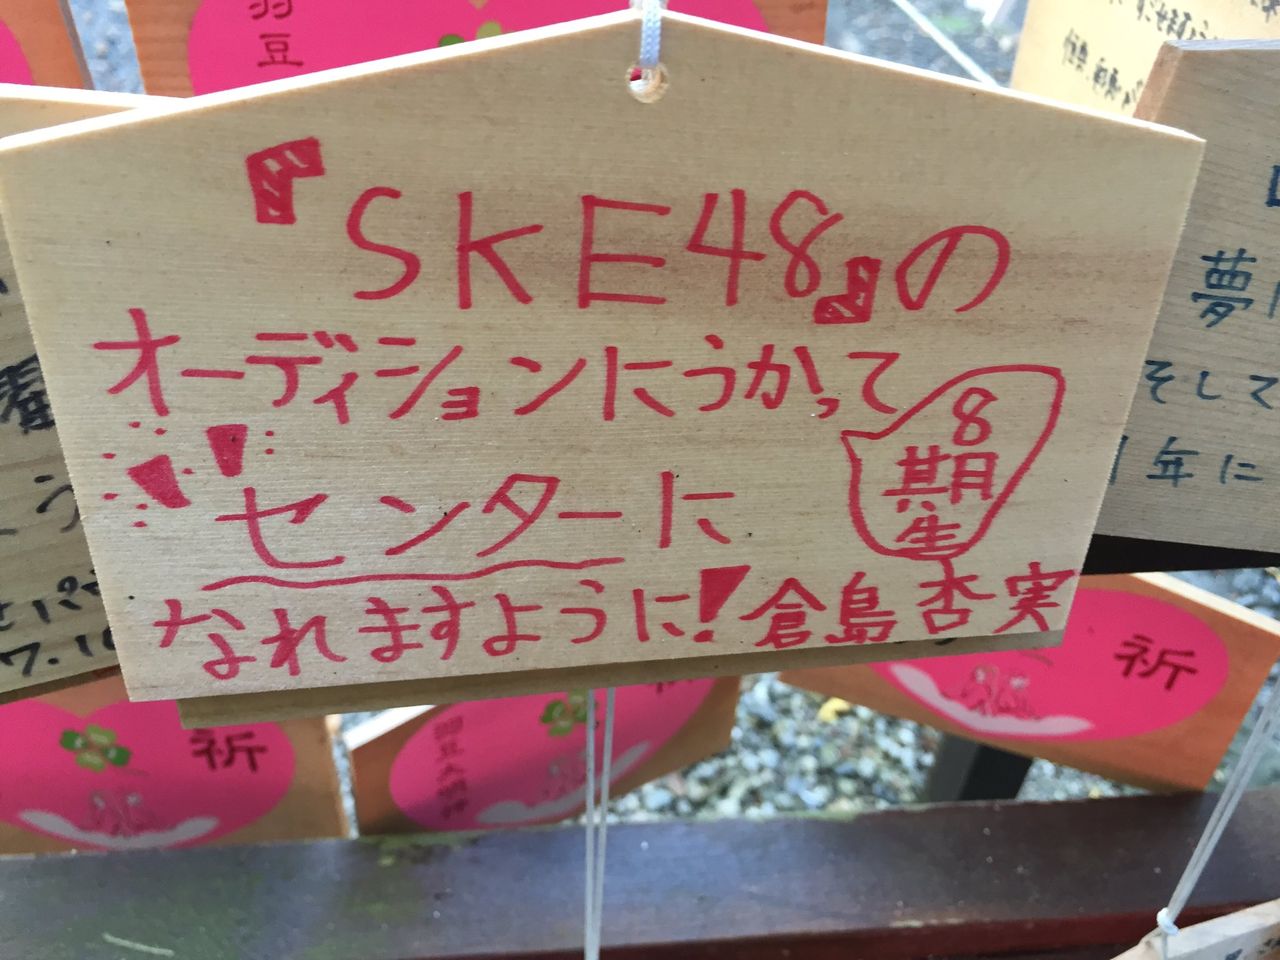 『SKE48』の
オーディションにうかって
8
期
生
センターに
なれますように! 倉島杏実
羽豆
夢
そして
年に
祈
祈